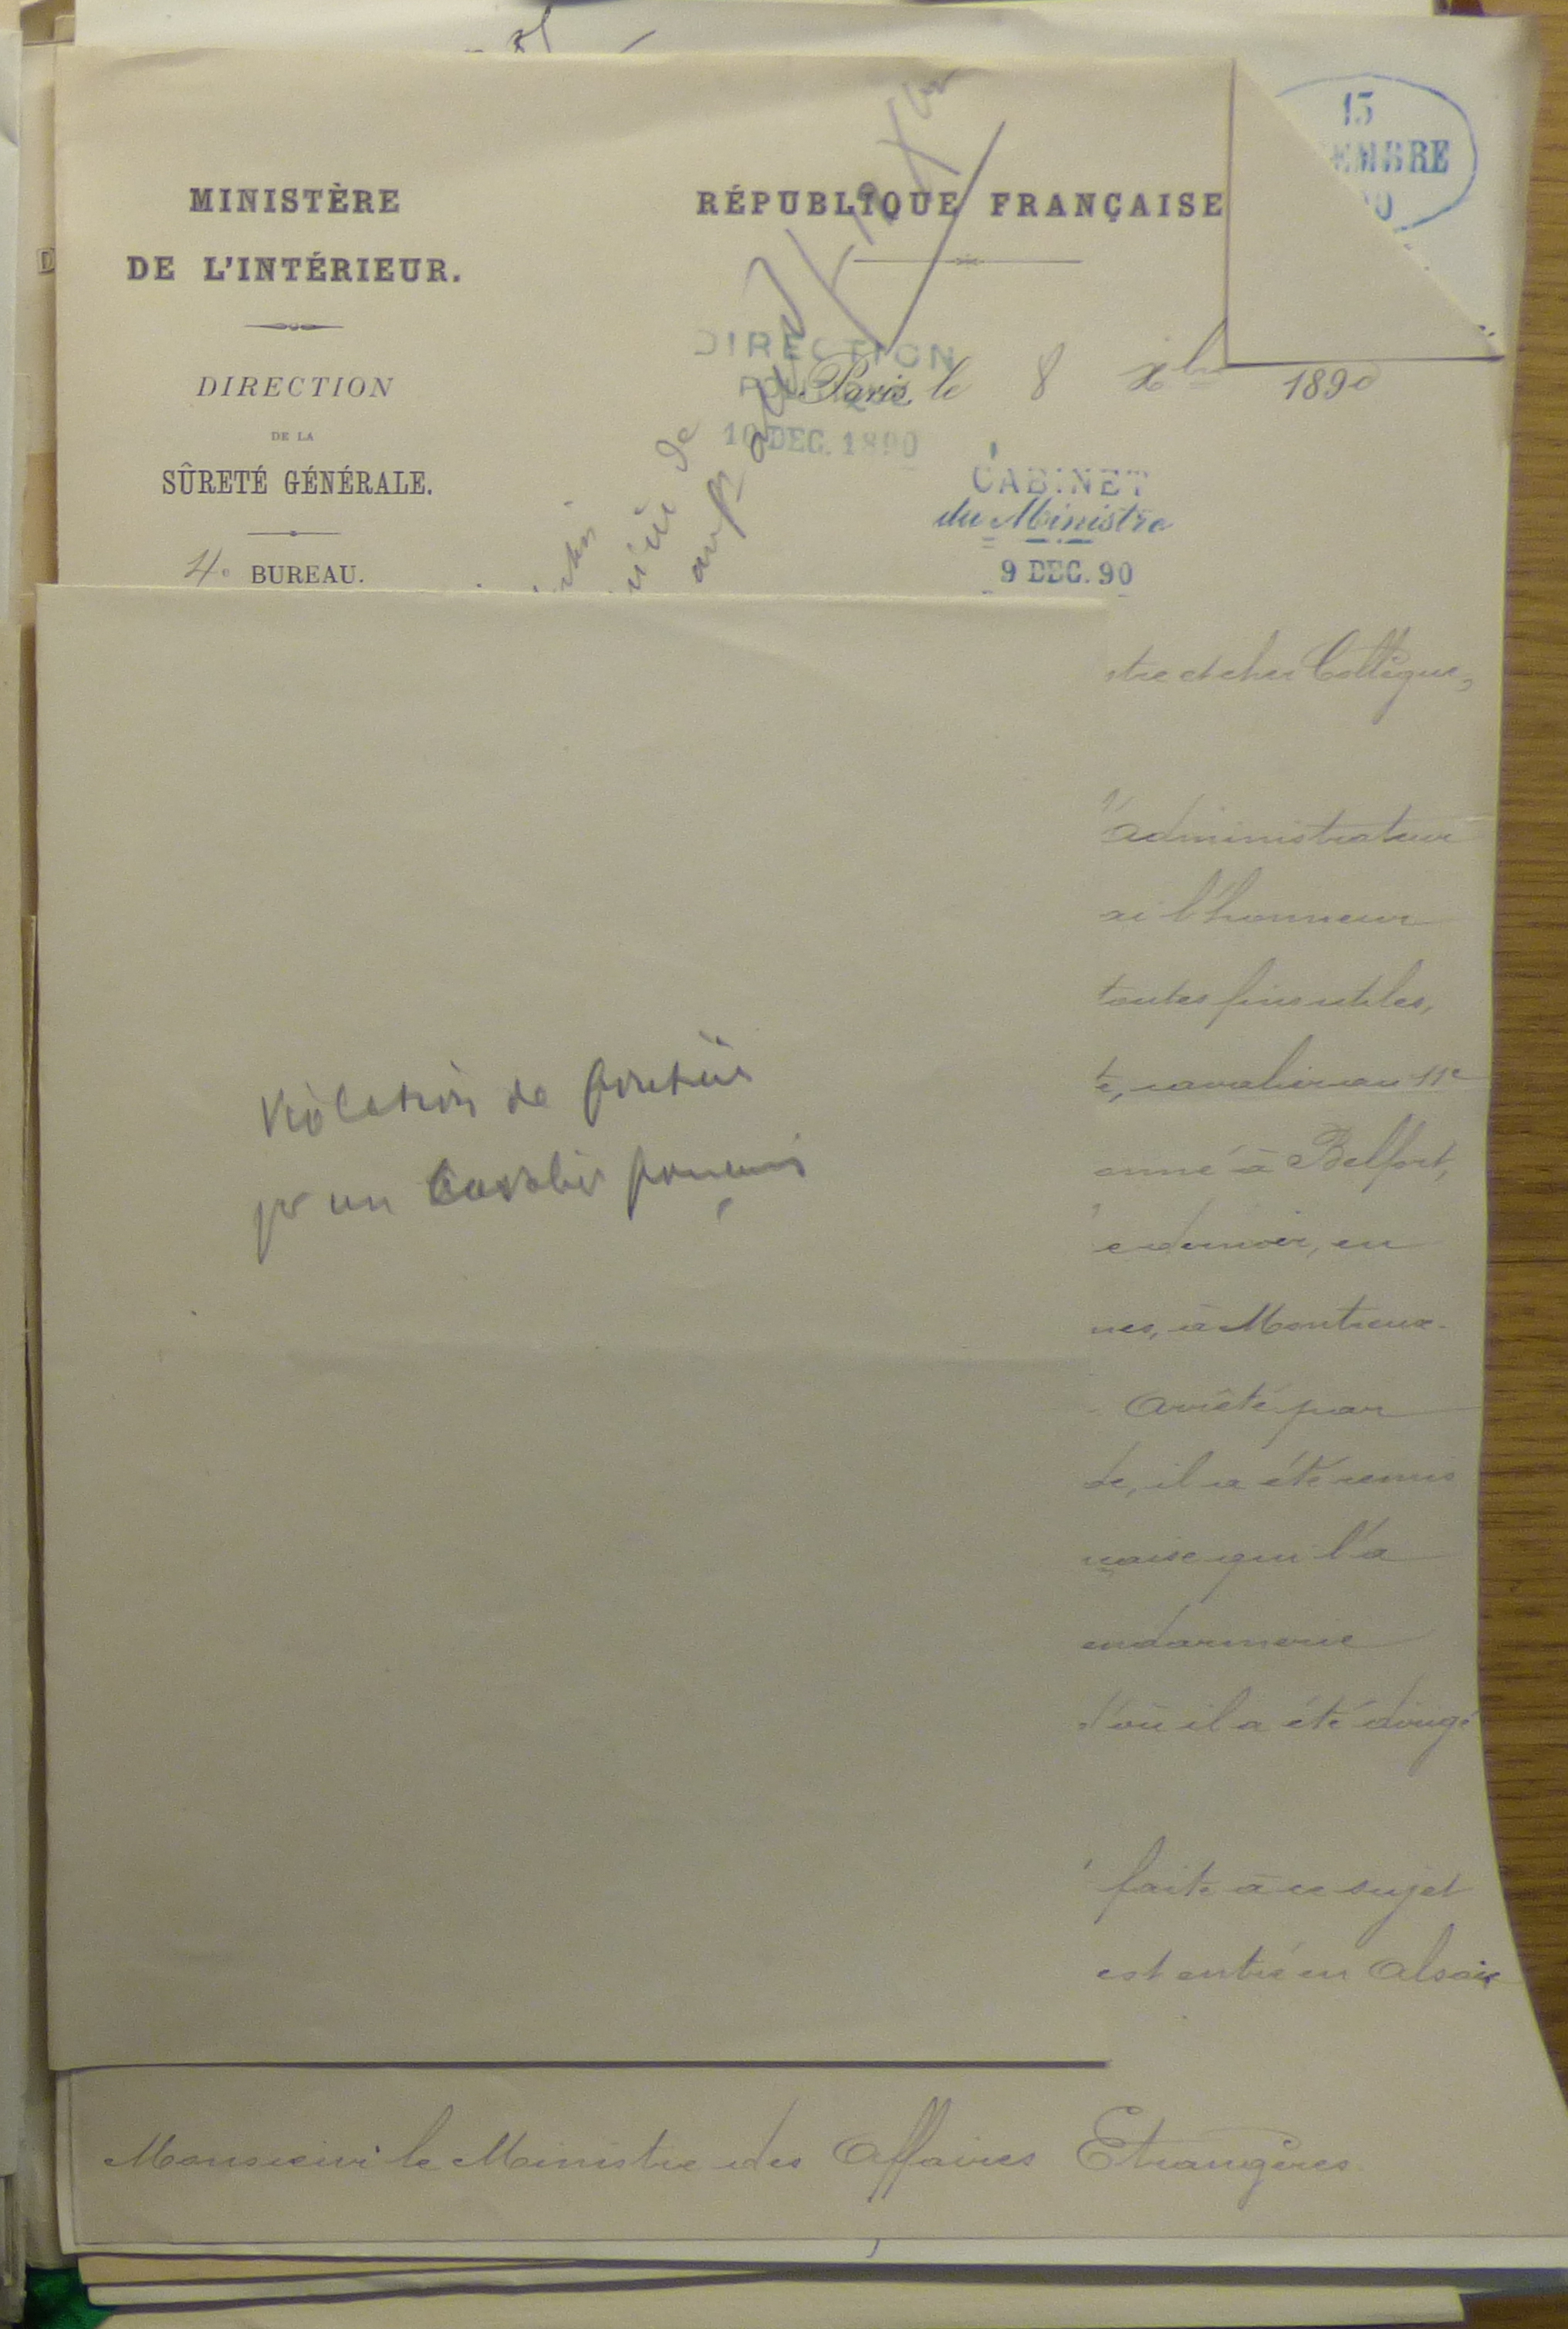 15
EMBRE
0
MINISTÈRE
DE L'INTÉRIEUR.
DIRECTION
DE LA
SÛRETÉ GÉNÉRALE.
4e BUREAU.
RÉPUBLIQUE FRANÇAISE
DIRECTION
Paris, le 8 Xbre 1890
10 DEC. 1890
CABINET
du Ministre
9 DEC. 90
tre et cher Collègue,
l'administrateur
ai l'honneur
toutes fins utiles,
te, cavalier au 11e
onné à Belfort,
e dernier, en
nes, à Montreux-
Arrêté par
de, il a été remis
çaise qui l'a
endarmerie
d'où il a été dirigé
faite à ce sujet
est entré en Alsace
Violation de frontière
pr un Cavalier français
Monsieur le Ministre des Affaires Etrangères.